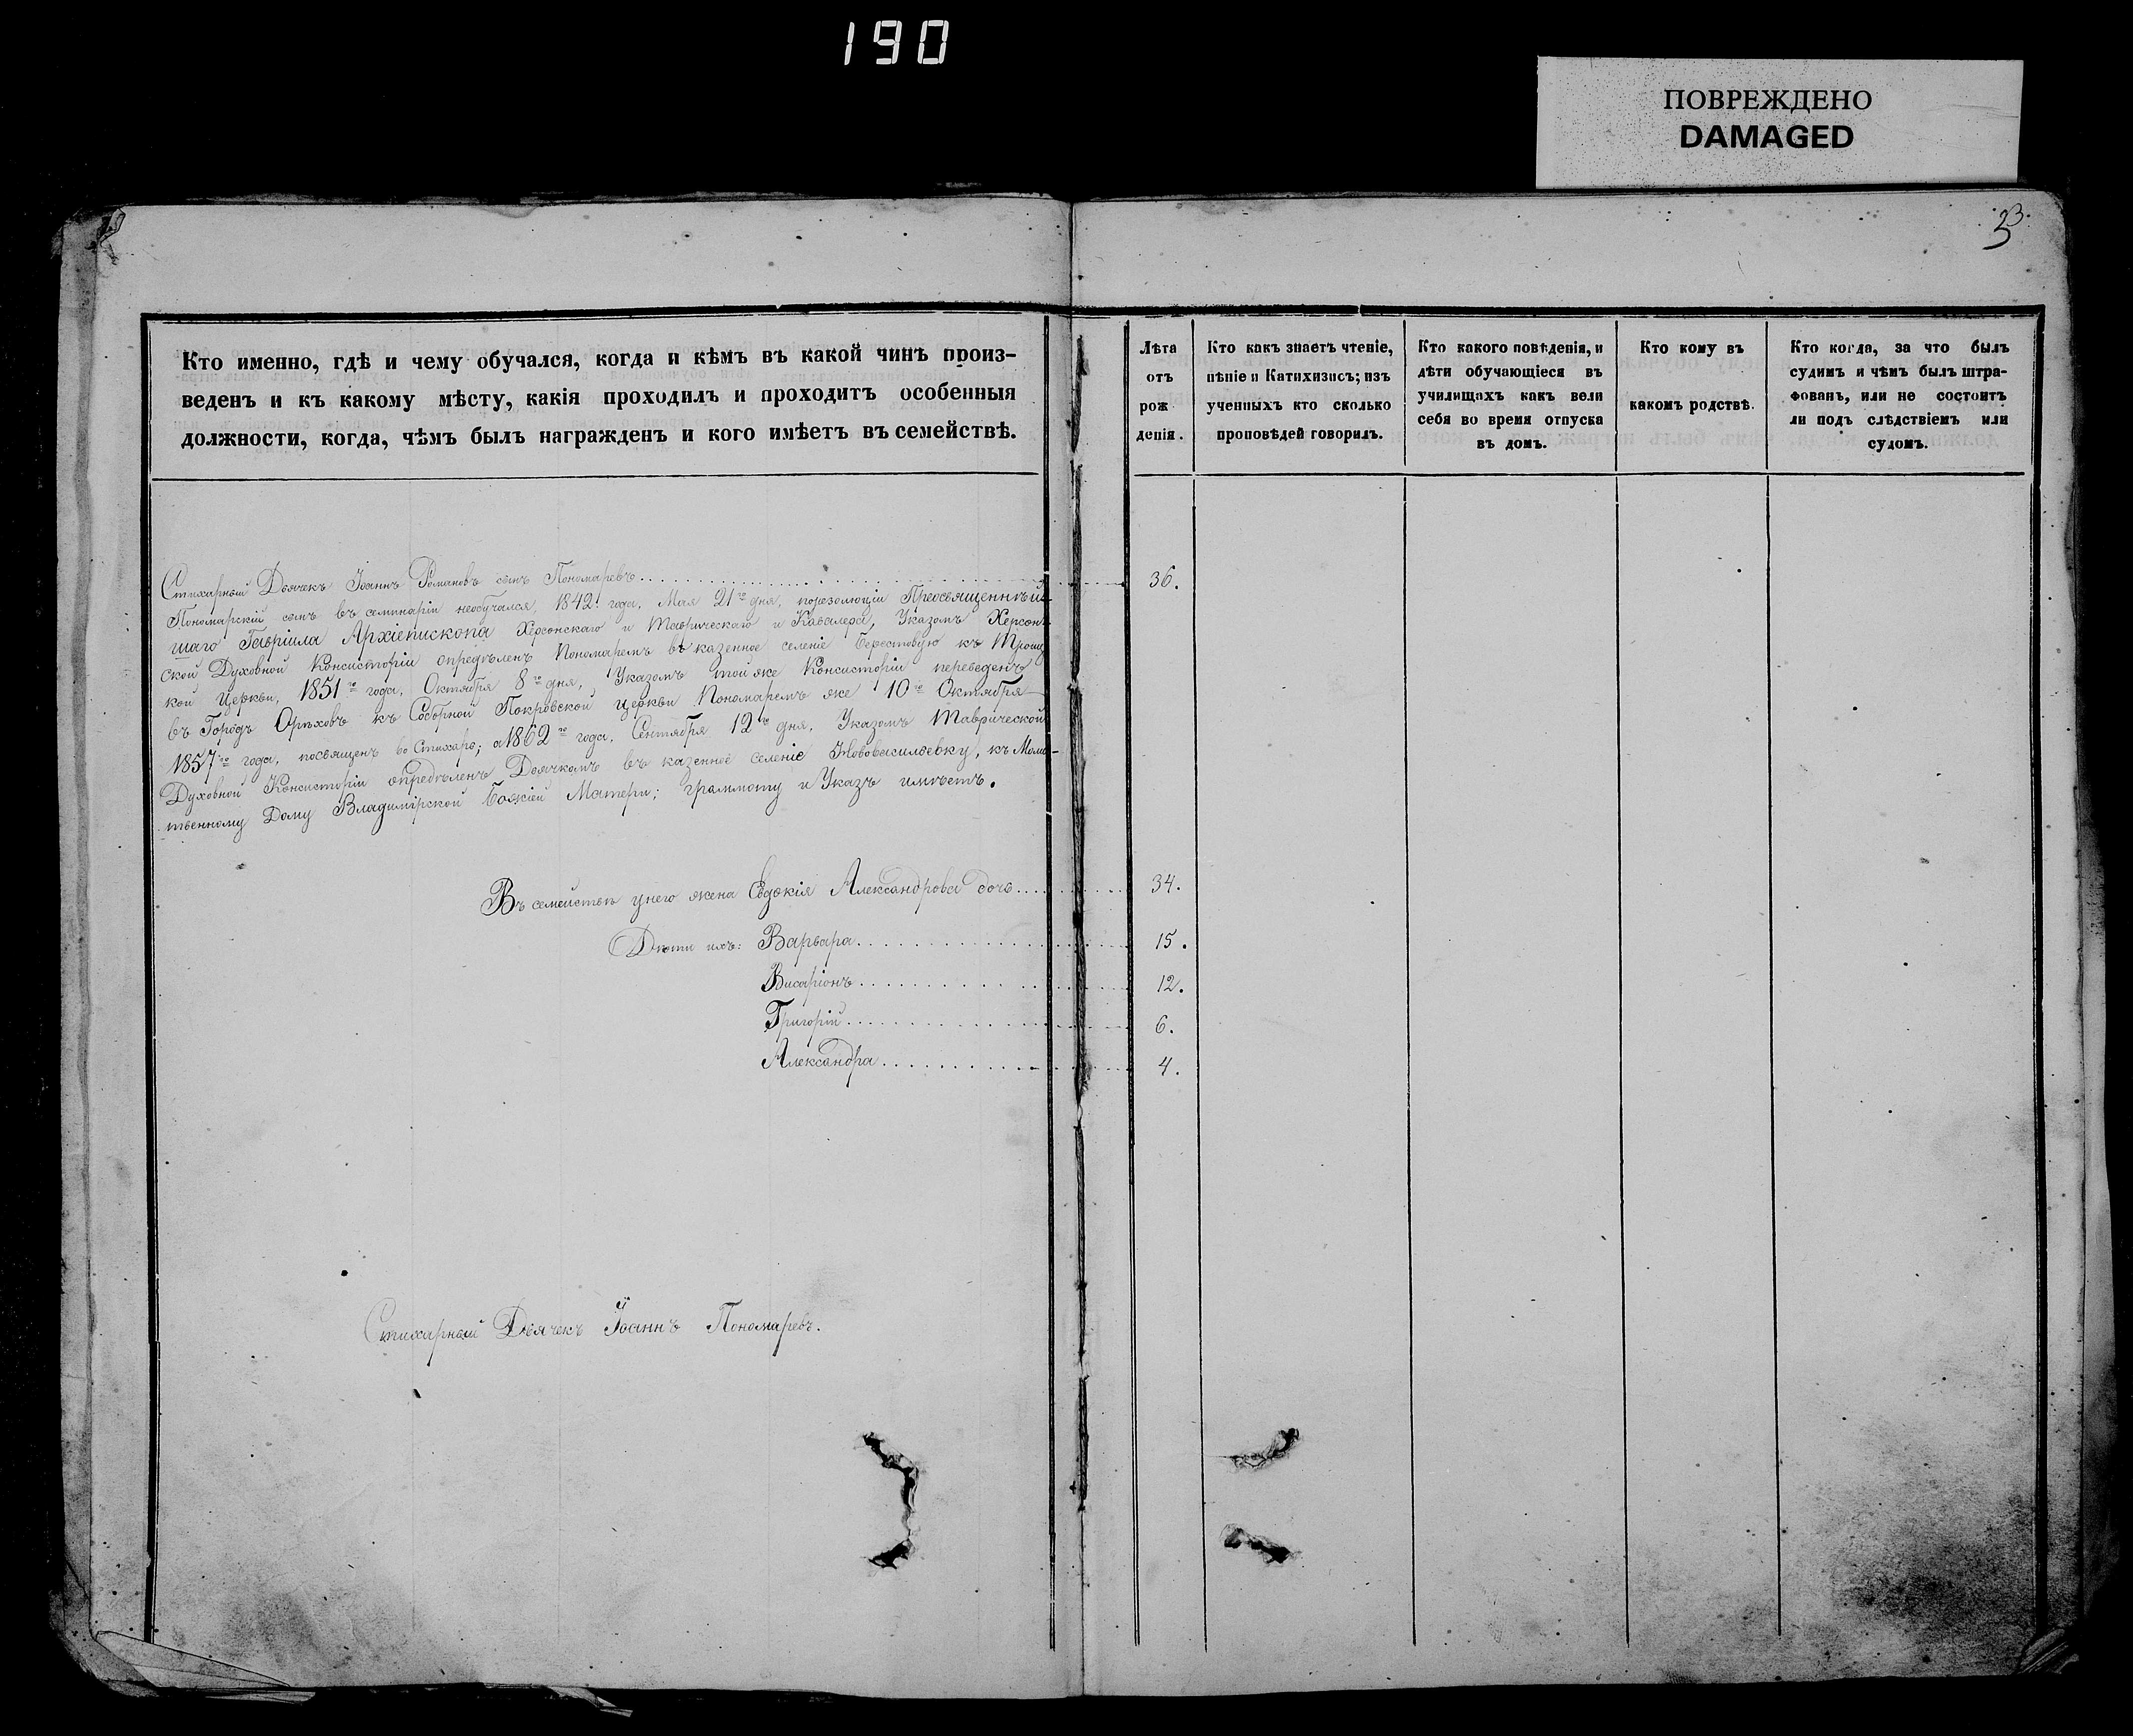 190
ПОВРЕЖДЕНО
DAMAGED
33.
Кто именно, гдѣ и чему обучался, когда и кѣмъ въ какой чинъ произ-
веденъ и къ какому мѣсту, какія проходилъ и проходитъ особенныя
должности, когда, чѣмъ былъ награжденъ и кого имѣетъ въ семействѣ.
Лѣта
отъ
рож
денія.
Кто какъ знаетъ чтеніе,
пѣніе и Катихизисъ; изъ
ученныхъ кто сколько
проповѣдей говорилъ.
Кто какого повѣденія, и
дѣти обучающіеся въ
училищахъ какъ вели
себя во время отпуска
въ домъ.
Кто кому въ
какомъ родствѣ.
Кто когда, за что былъ
судимъ и чѣмъ былъ штра-
фованъ, или не состоитъ
ли подъ слѣдствіемъ или
судомъ.
Стихарный Дьячекъ Іоаннъ Романовъ сынъ Пономаревъ 36.
Пономарскій сынъ въ семинаріи необучался, 1842 года, Мая 21го дня, порезолюціи Преосвященнѣй-
шаго Гавріила Архіепископа Херсонскаго и Таврическаго и Кавалера, Указомъ Херсон-
ской Духовной Консисторіи опредѣленъ Пономаремъ въ казенное селеніе Берестовую къ Троиц
кой Церкви, 1851го года, Октября 8го дня, Указомъ тойже Консисторіи переведенъ
въ Городъ Орѣховъ къ Соборной Покровской Церкви Пономаремъ же 10го Октября
1857го года, посвященъ во Стихарь; а 1862го года, Сентября 12го дня, Указомъ Таврической
Духовной Консисторіи опредѣленъ Дьячкомъ въ казенное селеніе Нововасильевку, къ Моли-
твенному Дому Владимірской Божіей Матери; граммоту и Указъ имѣетъ.
Въ семействѣ унего жена Евдокія Александрова дочь 34.
Дѣти ихъ: Варвара 15.
Висаріонъ 12.
Григорій 6.
Александра 4.
Стихарный Дьячекъ Іоаннъ Пономаревъ.